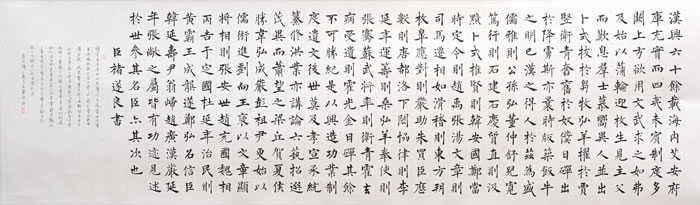 漢興六十餘載海內艾安府
庫充實而四夷未賓制度多
闕上方欲用文武求之如弗
及始以蒲輪迎枚生見主父
而歎息群士慕嚮異人並出
卜式拔於芻牧弘羊擢於賈
豎衛青奮於奴僕日磾出
於降虜斯亦曩時版築飯牛
之明已漢之得人於茲為盛
儒雅則公孫弘董仲舒兒寬
篤行則石建石慶質直則汲
黯卜式推賢則韓安國鄭當
時定令則趙禹張湯文章則
司馬遷相如滑稽則東方朔
枚皋應對則嚴助朱買臣歷
數則唐都洛下閎協律則李
延年運籌則桑弘羊奉使則
張騫蘇武將率則衛青霍去
病受遺則霍光金日磾其餘
不可勝紀是以興造功業制
度遺文後世莫及孝宣承統
纂脩洪業亦講論六藝招選
茂異而蕭望之梁丘賀夏侯
勝韋弘成嚴彭祖尹更始以
儒術進劉向王褒以文章顯
將相則張安世趙充國魏相
丙吉于定國杜延年治民則
黃霸王成龔遂鄭弘召信臣
韓延壽尹翁歸趙廣漢嚴延
年張敞之屬皆有功迹見述
於世參其名臣亦其次也
臣褚遂良書